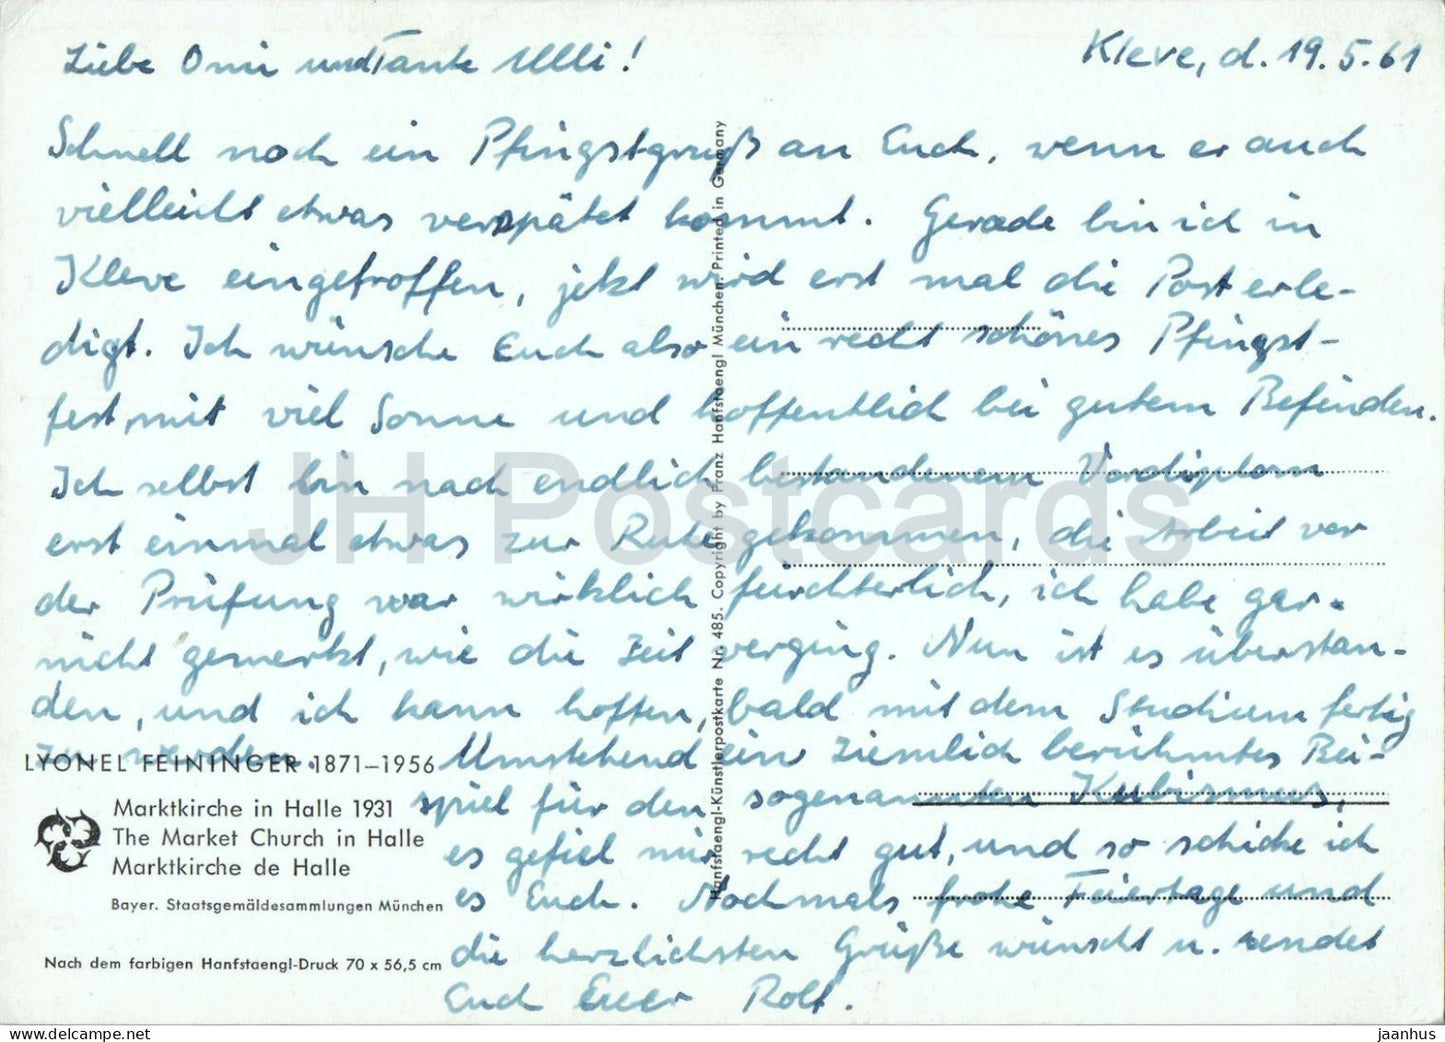 Kleve, d. 19.5.61
Liebe Omi und Tante Ulli!
Schnell noch ein Pfingstgruß an Euch, wenn er auch
vielleicht etwas verspätet kommt. Gerade bin ich in
Kleve eingetroffen, jetzt wird erst mal die Post erle-
digt. Ich wünsche Euch also ein recht schönes Pfingst-
fest, mit viel Sonne und hoffentlich bei gutem Befinden.
Ich selbst bin nach endlich bestandenem Vordiplom
erst einmal etwas zur Ruhe gekommen, die Arbeit vor
der Prüfung war wirklich fürchterlich, ich habe gar-
nicht gemerkt, wie die Zeit verging. Nun ist es überstan-
den, und ich kann hoffen, bald mit dem Studium fertig
zu werden. Umstehend ein ziemlich berühmtes Bei-
spiel für den sogenannten Kubismus,
es gefiel mir recht gut, und so schicke ich
es Euch. Nochmals frohe Feiertage und
die herzlichsten Grüße wünscht u. sendet
Euch Euer Rolf.
LYONEL FEININGER 1871–1956
Marktkirche in Halle 1931
The Market Church in Halle
Marktkirche de Halle
Bayer. Staatsgemäldesammlungen München
Nach dem farbigen Hanfstaengl-Druck 70 x 56,5 cm
Hanfstaengl-Künstlerpostkarte Nr. 485. Copyright by Franz Hanfstaengl München. Printed in Germany
JH Postcards
jaanhus